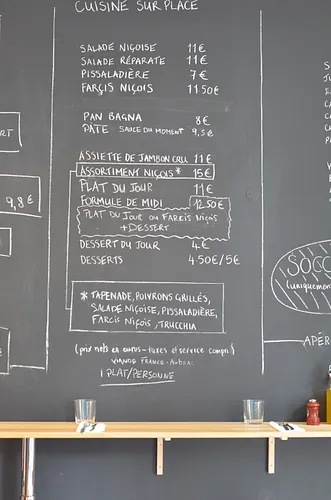 CUISINE SUR PLACE
SALADE NIÇOISE 11€
SALADE RÉPARATE 11€
PISSALADIÈRE 7€
FARÇIS NIÇOIS 11.50€
PAN BAGNA 8€
PATE SAUCE DU MOMENT 9,5€
ASSIETTE DE JAMBON CRU 11€
ASSORTIMENT NIÇOIS* 15€
PLAT DU JOUR 11€
FORMULE DE MIDI 12.50€
PLAT DU JOUR OU FARCIS NIÇOIS
+ DESSERT
DESSERT DU JOUR 4€
DESSERTS 4.50€/5€
* TAPENADE, POIVRONS GRILLÉS,
SALADE NIÇOISE, PISSALADIÈRE,
FARCIS NIÇOIS, TRUCCHIA
(prix nets en euros-taxes et service compris)
VIANDE FRANCE-
1 PLAT/PERSONNE
RT
9,8€
SOCC
(uniquemen
APÉR